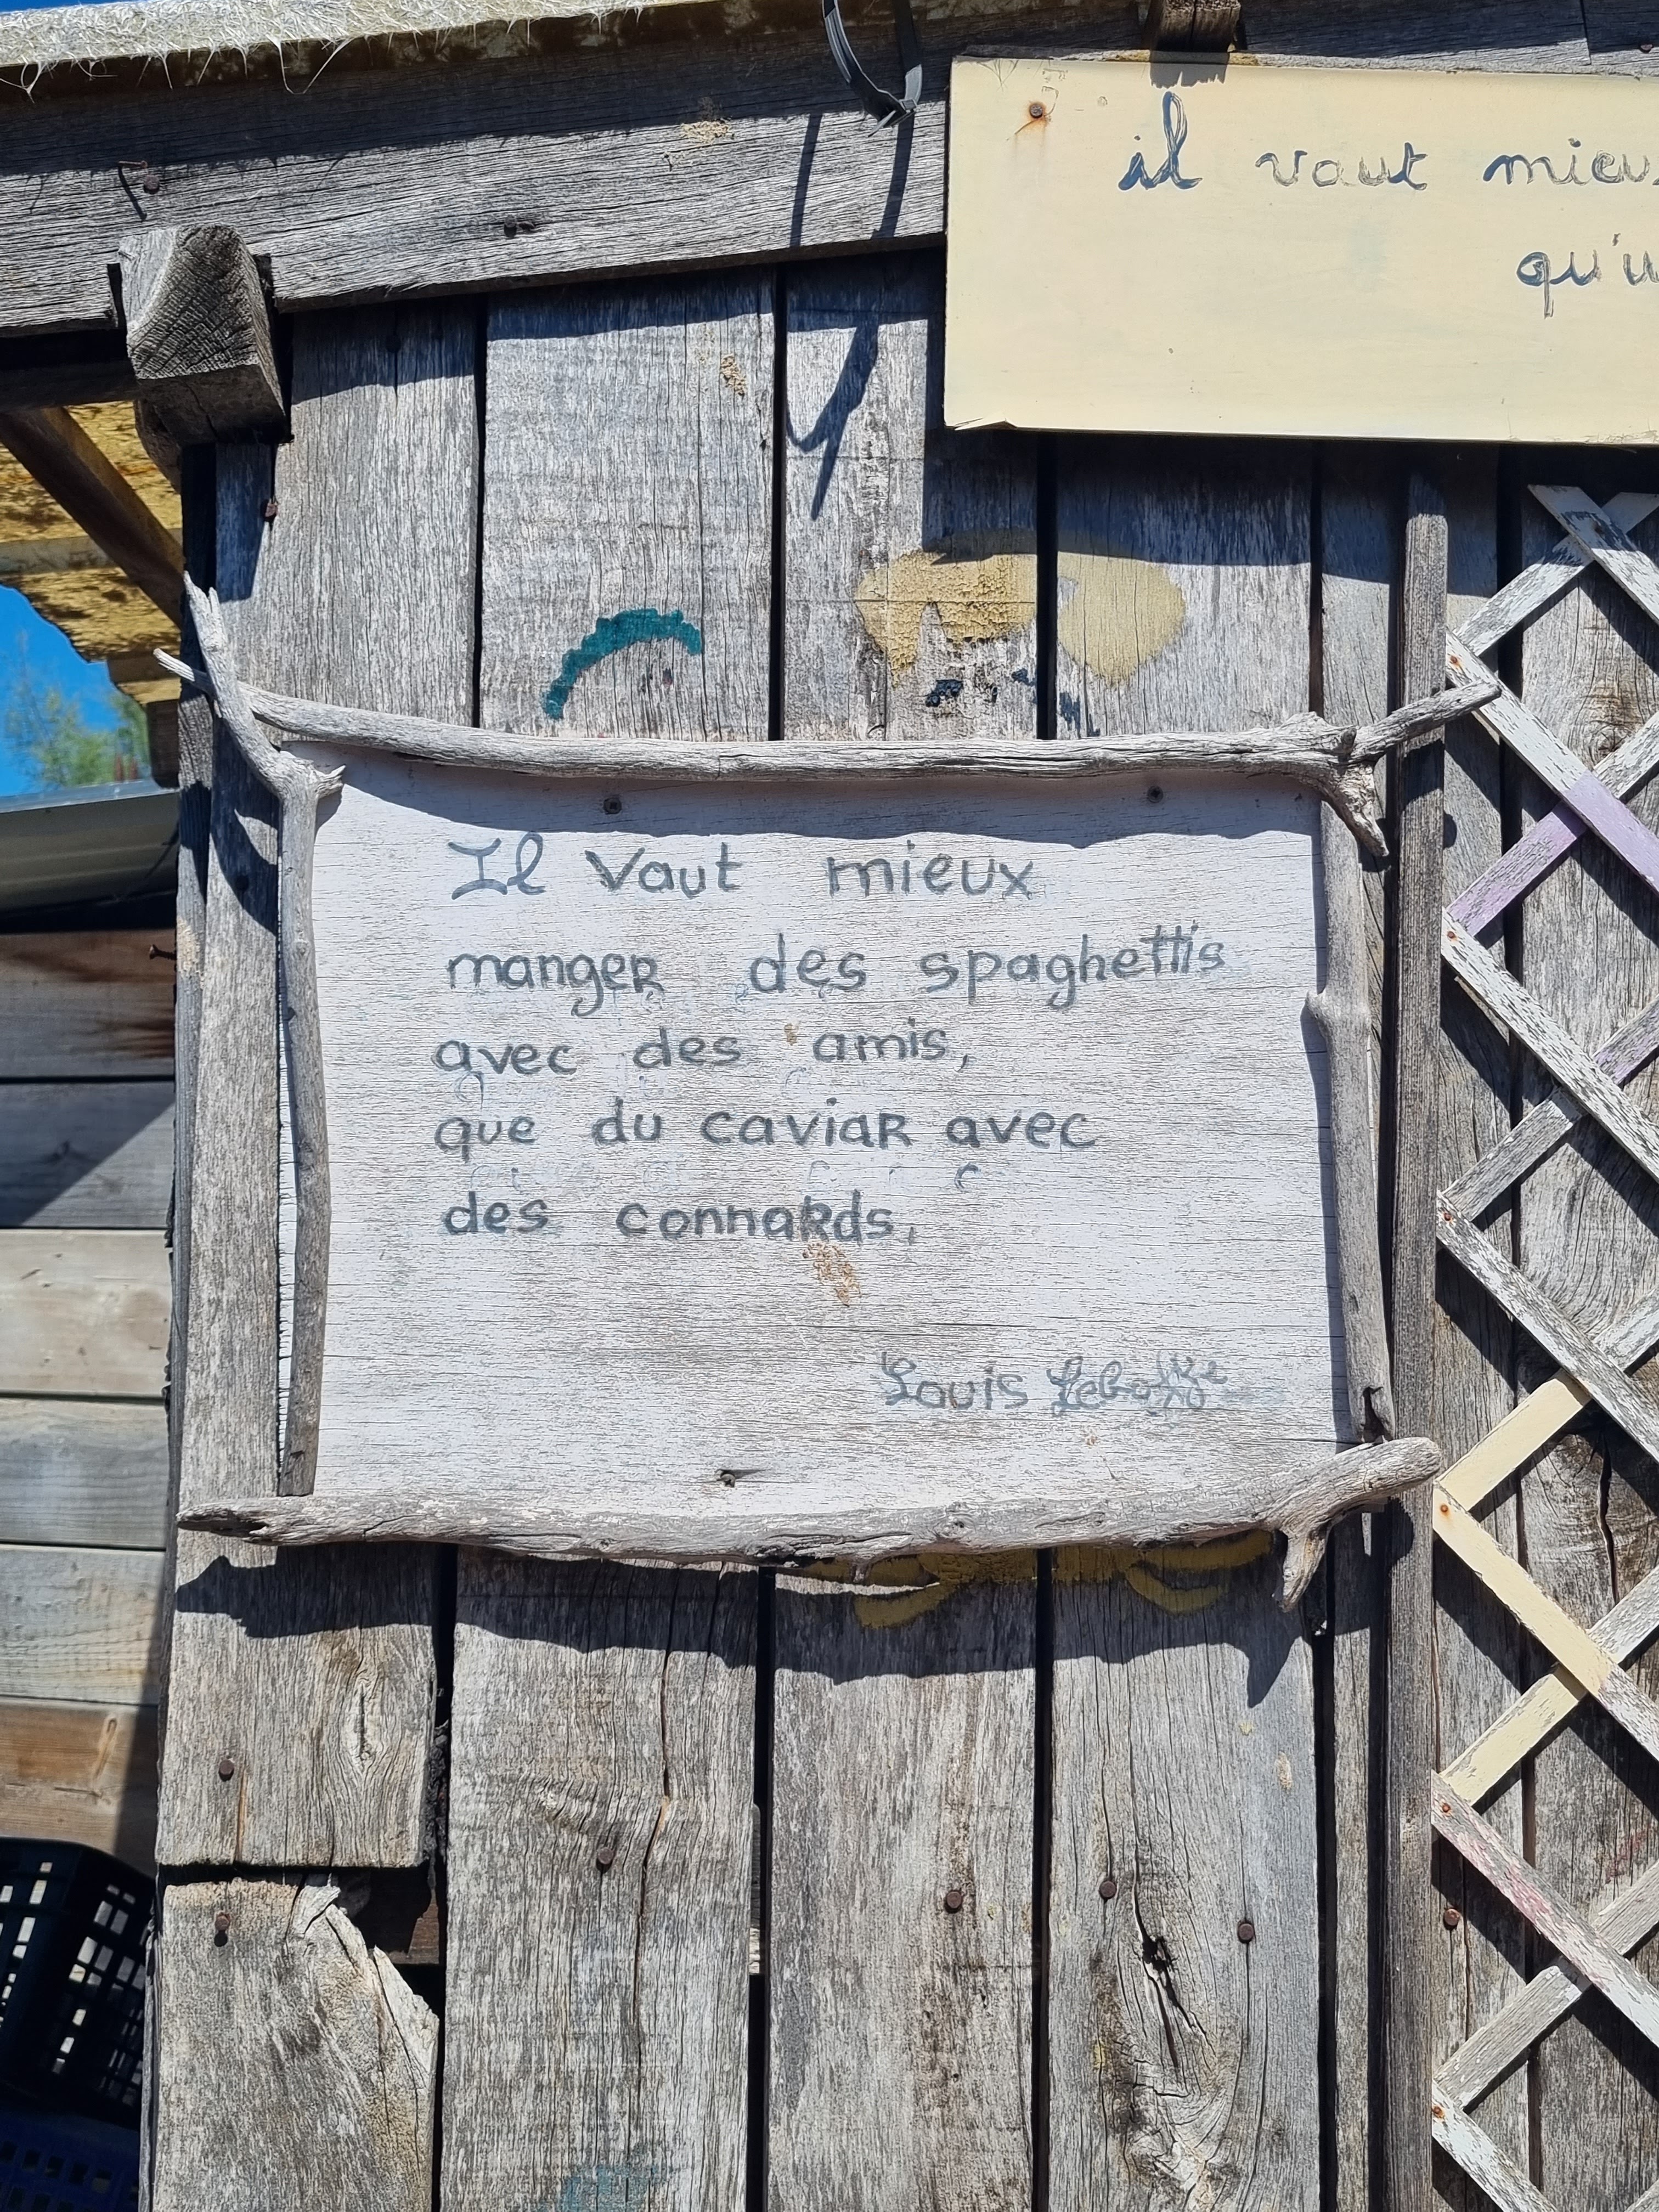 il vaut mieux
qu'u
Il vaut mieux
manger des spaghettis
avec des amis,
que du caviar avec
des connards,
Louis